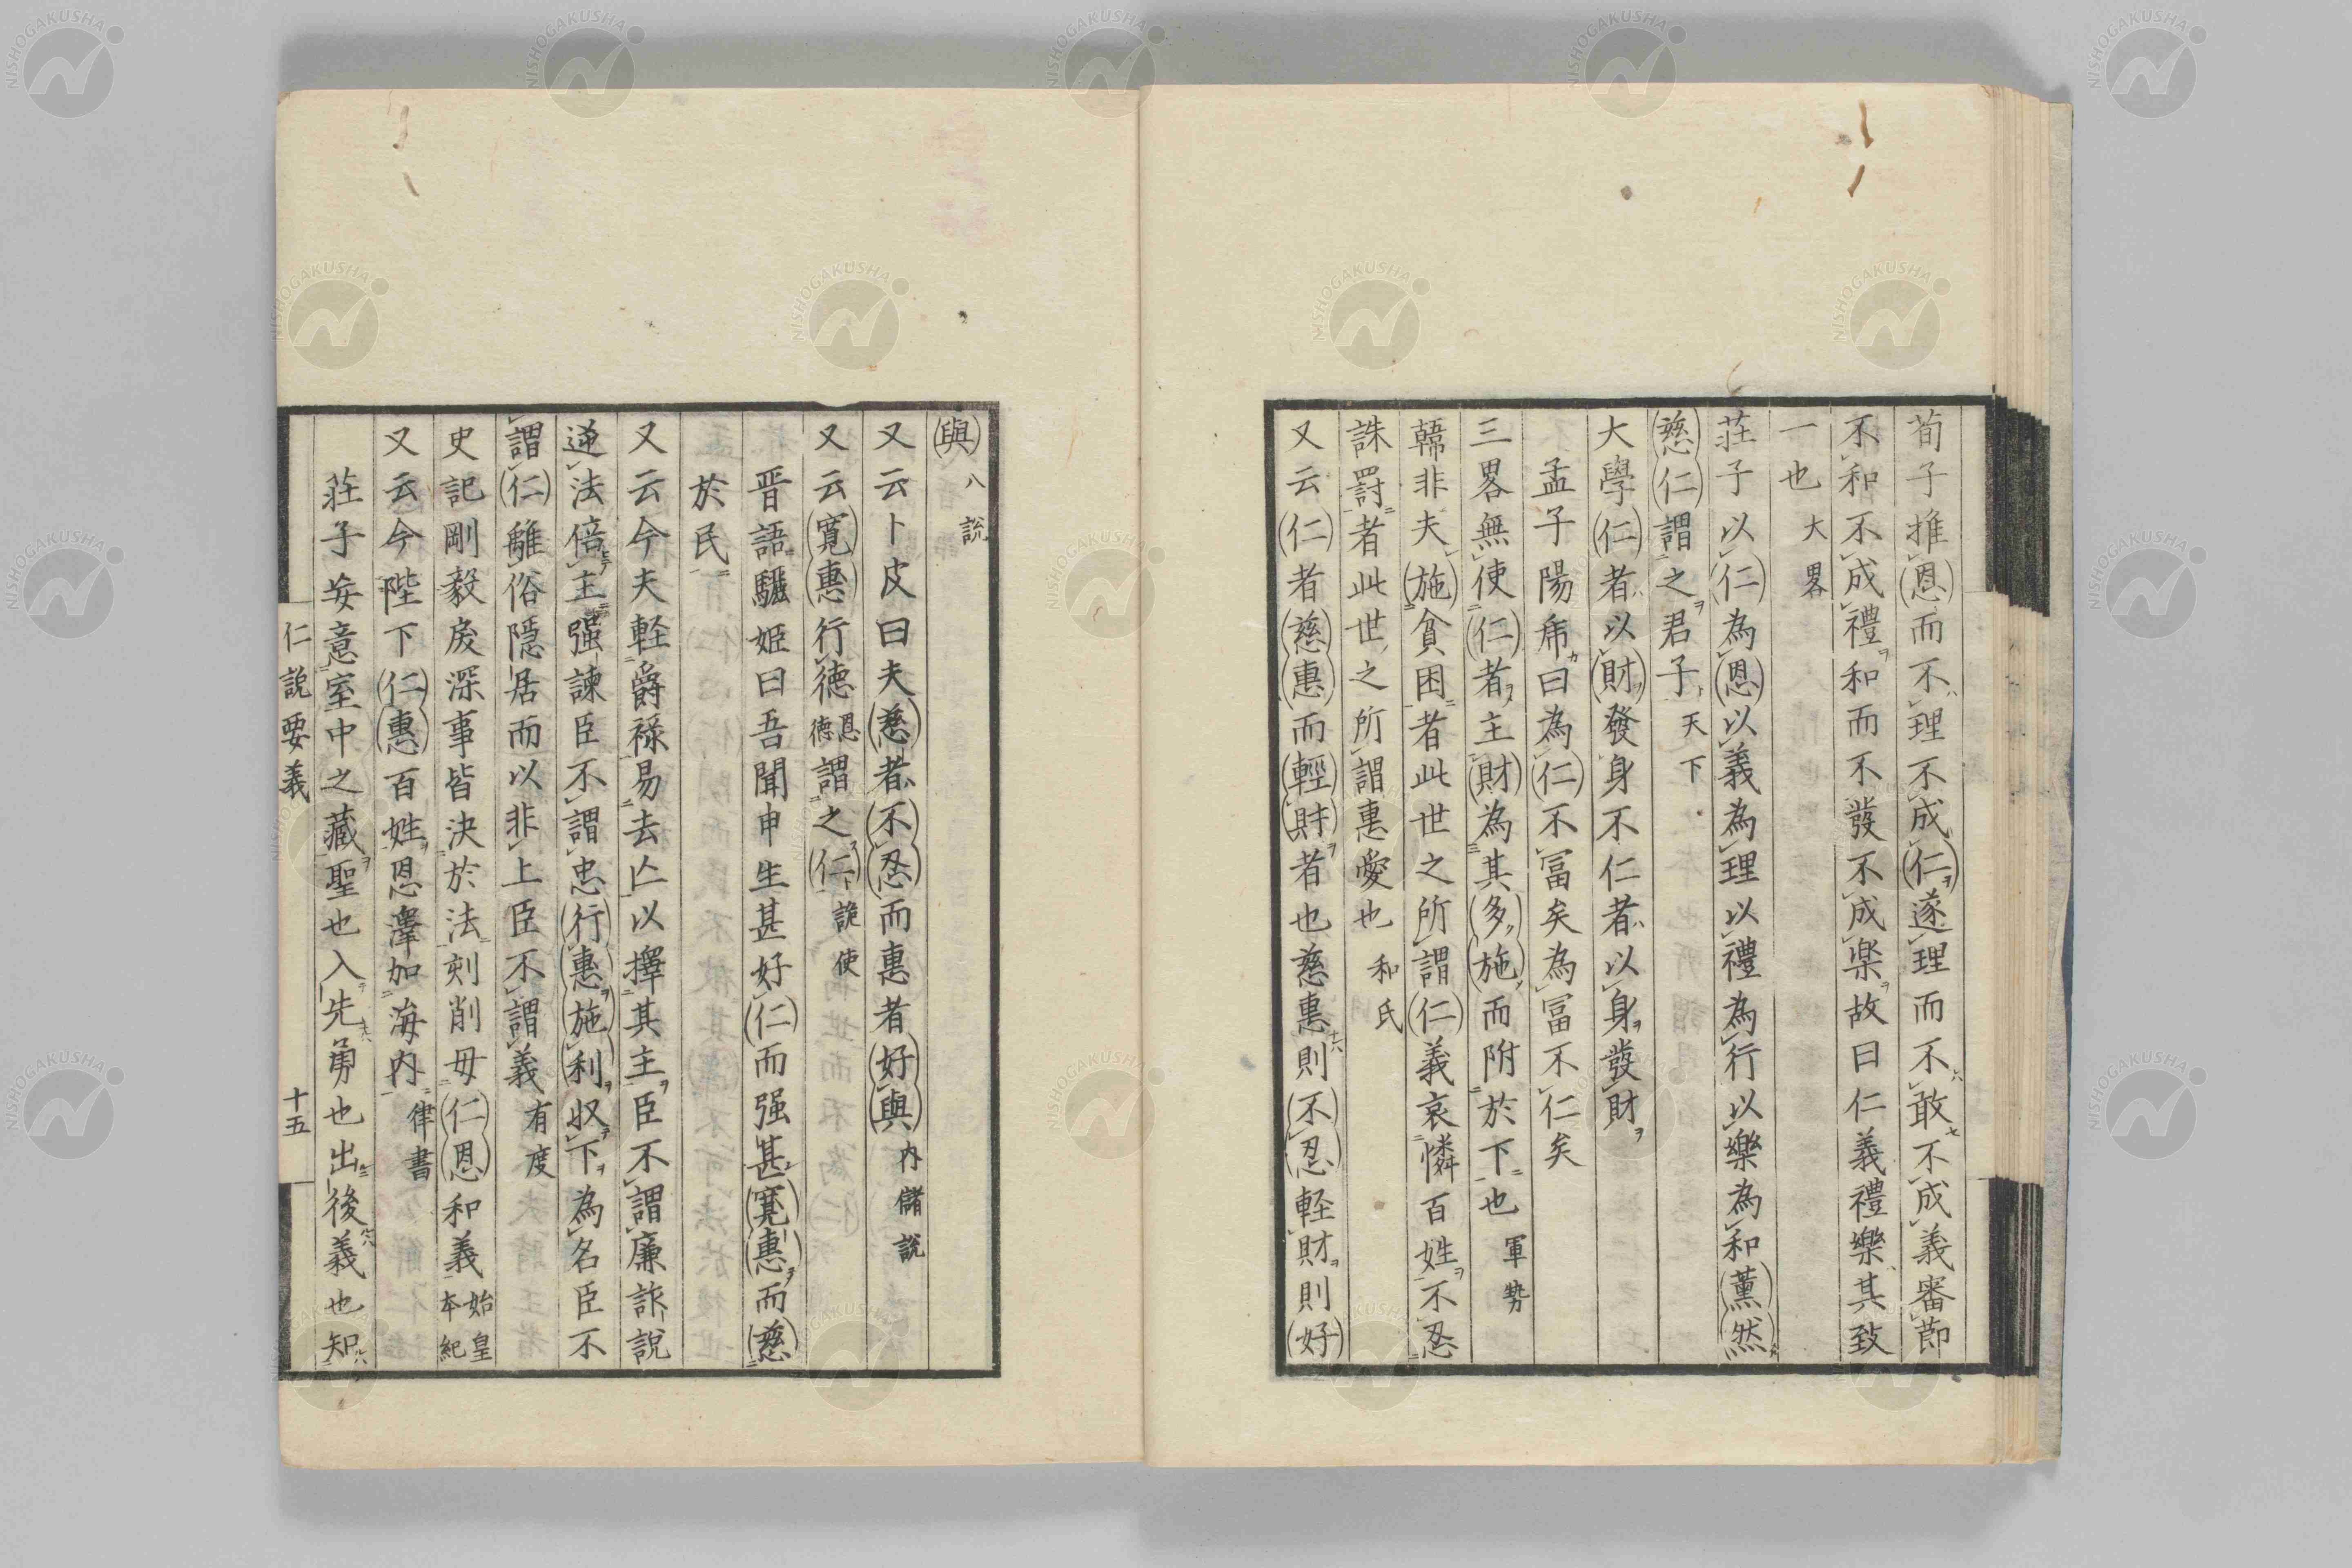 荀子推恩而不理不成仁遂理而不敢不成義審節
不和不成禮和而不發不成楽故曰仁義禮樂其致
一也 大畧
荘子以仁為恩以義為理以禮為行以樂為和薰然
慈仁謂之君子 天下
大學仁者以財發身不仁者以身發財
孟子陽乕曰為仁不冨矣為冨不仁矣
三畧無使仁者主財為其多施而附於下也 軍勢
韓非夫施貧困者此世之所謂仁義哀憐百姓不忍
誅罸者此世之所謂惠愛也 和氏
又云仁者慈惠而輕財者也慈惠則不忍軽財則好
與 八説
又云卜皮曰夫慈者不忍而惠者好與 内儲説
又云寛惠行徳 恩德 謂之仁 詭使
晋語驪姫曰吾聞申生甚好仁而强甚寛惠而慈
於民
又云今夫軽爵禄易去亡以擇其主臣不謂廉詐説
逆法倍主强諫臣不謂忠行惠施利収下為名臣不
謂仁離俗隠居而以非上臣不謂義 有度
史記剛毅戾深事皆決於法刻削毋仁恩和義 始皇本紀
又云今陛下仁惠百姓恩澤加海内 律書
荘子妄意室中之藏聖也入先勇也出後義也知
仁説要義
十五
NISHOGAKUSHA